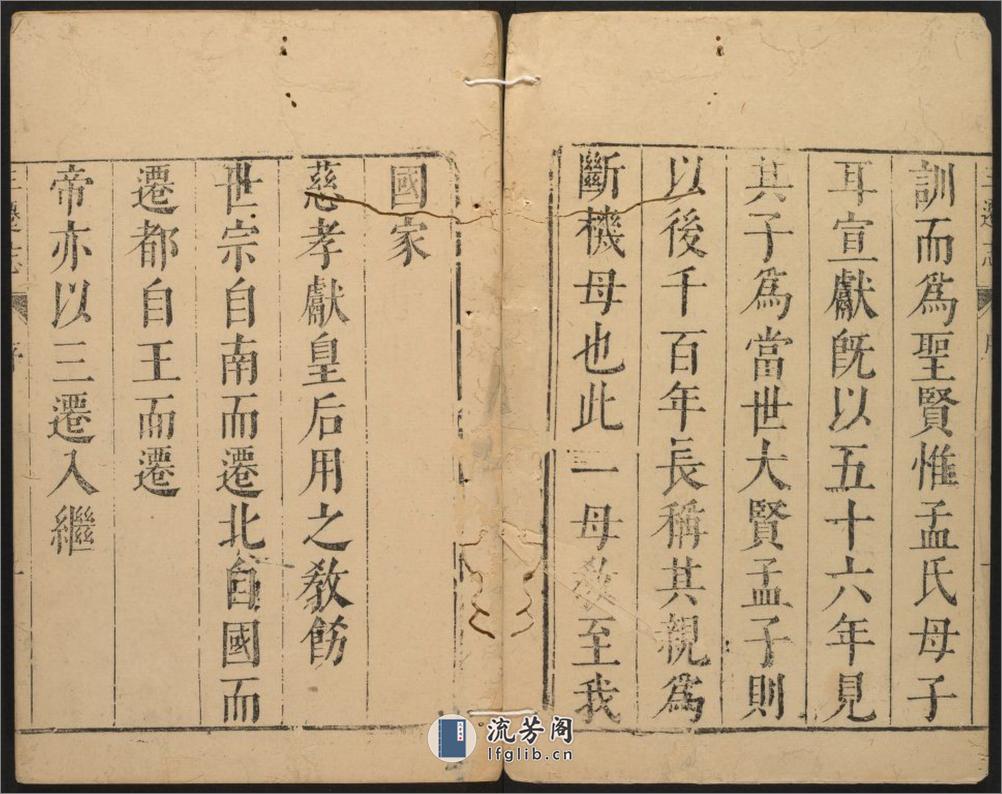 訓而爲聖賢惟孟氏母子
耳宣獻旣以五十六年見
其子爲當世大賢孟子則
以後千百年長稱其親爲
斷機母也此一母教至我
國家
慈孝獻皇后用之教飭
世宗自南而遷北自國而
遷都自王而遷
帝亦以三遷入繼
三遷志
序
一
三遷志
序
一
流芳阁
lfglib.cn